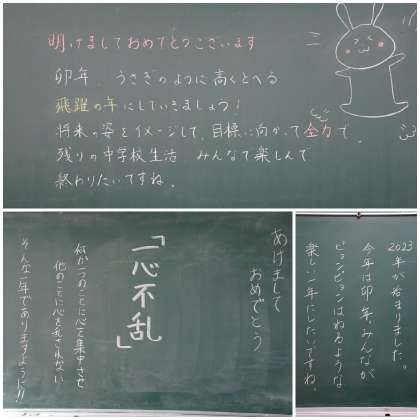 明けましておめでとうございます
卯年、うさぎのように高くとべる
飛躍の年にしていきましょう!
将来の姿をイメージして、目標に向かって全力で。
残りの中学校生活 みんなで楽しんで
終わりたいですね。
あけまして
おめでとう
「一心不乱」
何か一つのことに心を集中させ
他のことに心を乱されない
そんな一年でありますように!!
2023年が始まりました。
今年は卯年。みんなが
ピョンピョンはねるような
楽しい1年にしたいですね。